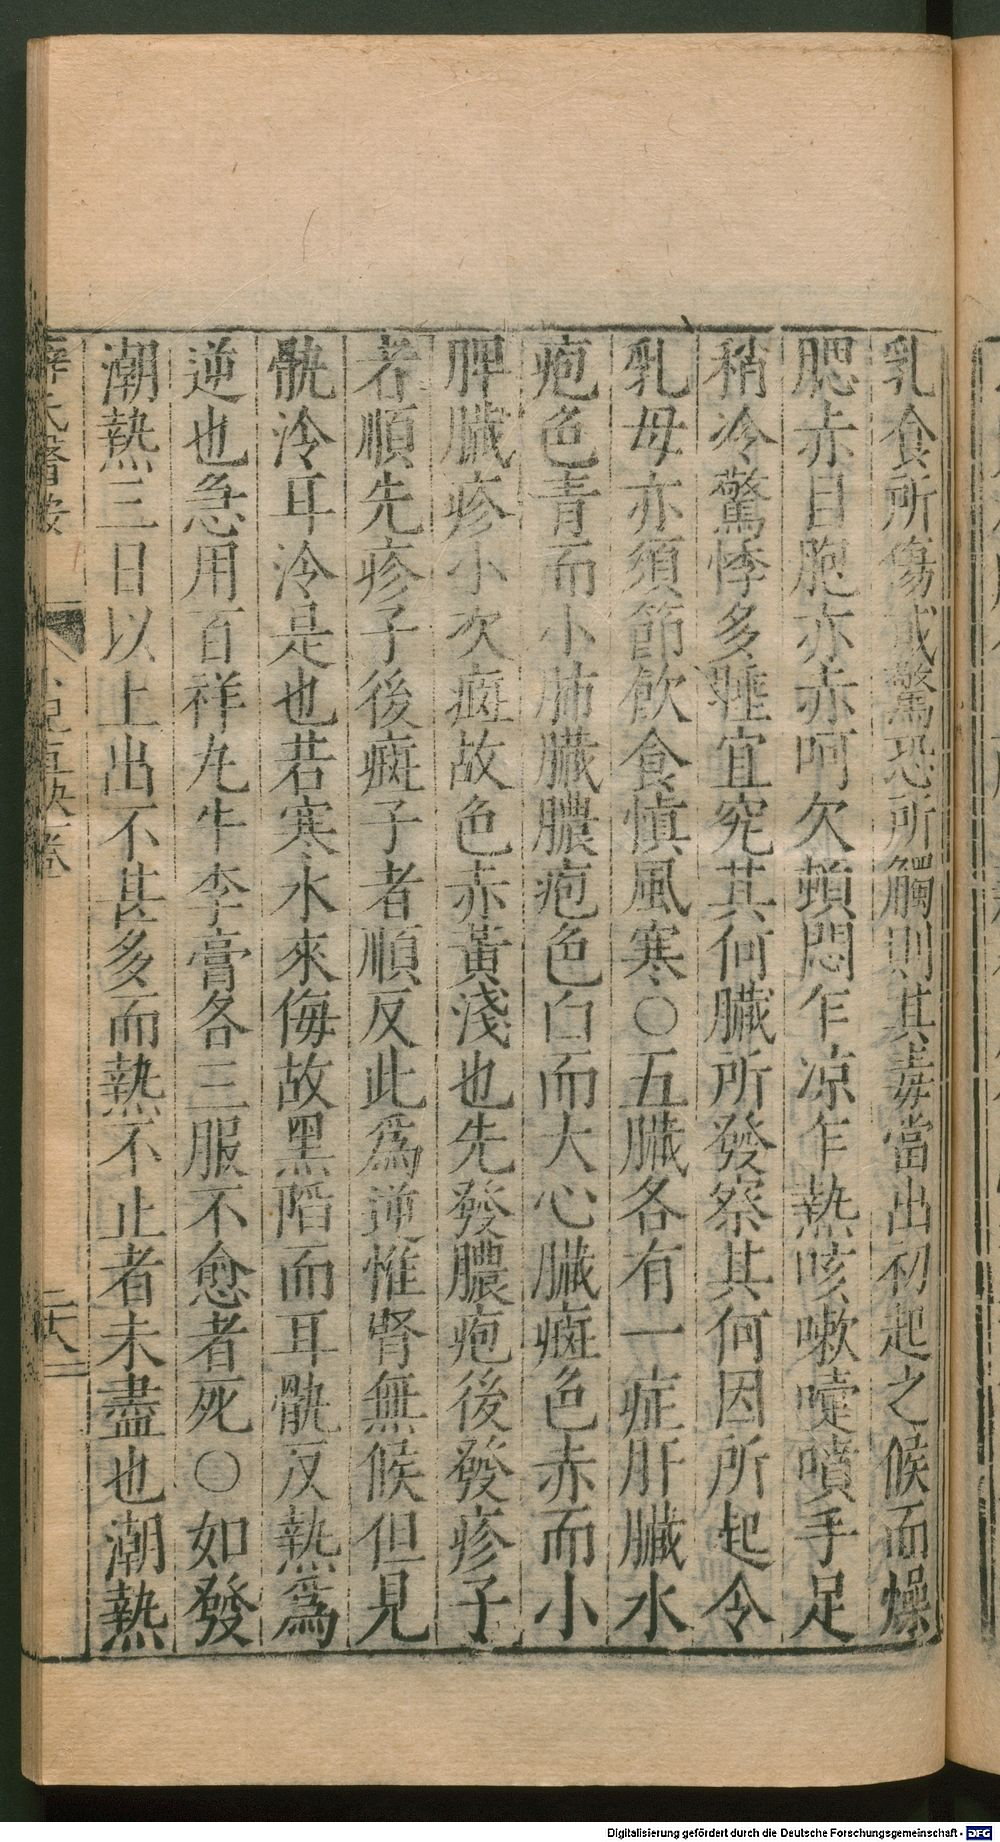 乳食所傷或驚恐所觸則其毒當出初起之候面燥
腮赤目胞亦赤呵欠頓悶乍凉乍熱咳嗽嚏噴手足
稍冷驚悸多睡宜究其何臟所發察其何因所起令
乳母亦須節飲食慎風寒○五臟各有一症肝臟水
疱色青而小肺臟膿疱色白而大心臟癍色赤而小
脾臟疹小次癍故色赤黃淺也先發膿疱後發疹子
者順先疹子後癍子者順反此爲逆惟腎無候但見
骩冷耳冷是也若寒水來侮故黑陷而耳骩反熱爲
逆也急用百祥丸牛李膏各三服不愈者死○如發
潮熱三日以上出不甚多而熱不止者未盡也潮熱
薛氏醫按 小兒直訣卷 二六
Digitalisierung gefördert durch die Deutsche Forschungsgemeinschaft - DFG